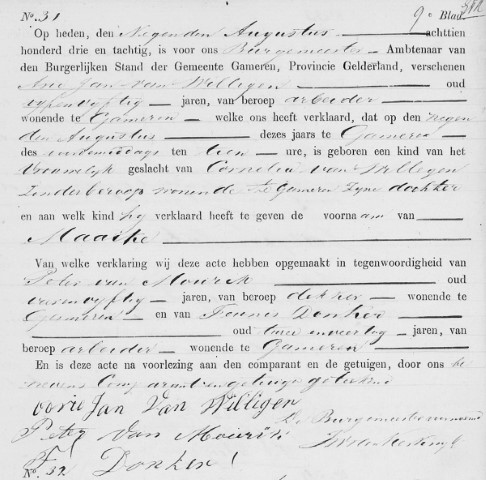 No. 31 9e Blad.
Op heden, den Negenden Augustus achttien
honderd drie en tachtig, is voor ons Burgemeester Ambtenaar van
den Burgerlijken Stand der Gemeente Gameren, Provincie Gelderland, verschenen
Arie Jan van Willigen oud
vyfenvyftig jaren, van beroep arbeider
wonende te Gameren welke ons heeft verklaard, dat op den negen
den Augustus dezes jaars te Gameren
des voormiddags ten tien ure, is geboren een kind van het
Vrouwelyk geslacht van Cornelia van Willegen
Zonder beroep wonende te Gameren Zyne dochter
en aan welk kind hy verklaard heeft te geven de voornaam van
Maaike
Van welke verklaring wij deze acte hebben opgemaakt in tegenwoordigheid van
Peter van Mourik oud
vyftig jaren, van beroep dekker wonende te
Gameren en van Teunis Donker
oud twee en veertig jaren, van
beroep arbeider wonende te Gameren
En is deze acte na voorlezing aan den comparant en de getuigen, door ons be
nevens Comparant en getuigen geteekend
Jan Van Willigen
Peter van Mourik De Burgemeester voornoemd
T Donker
No. 32